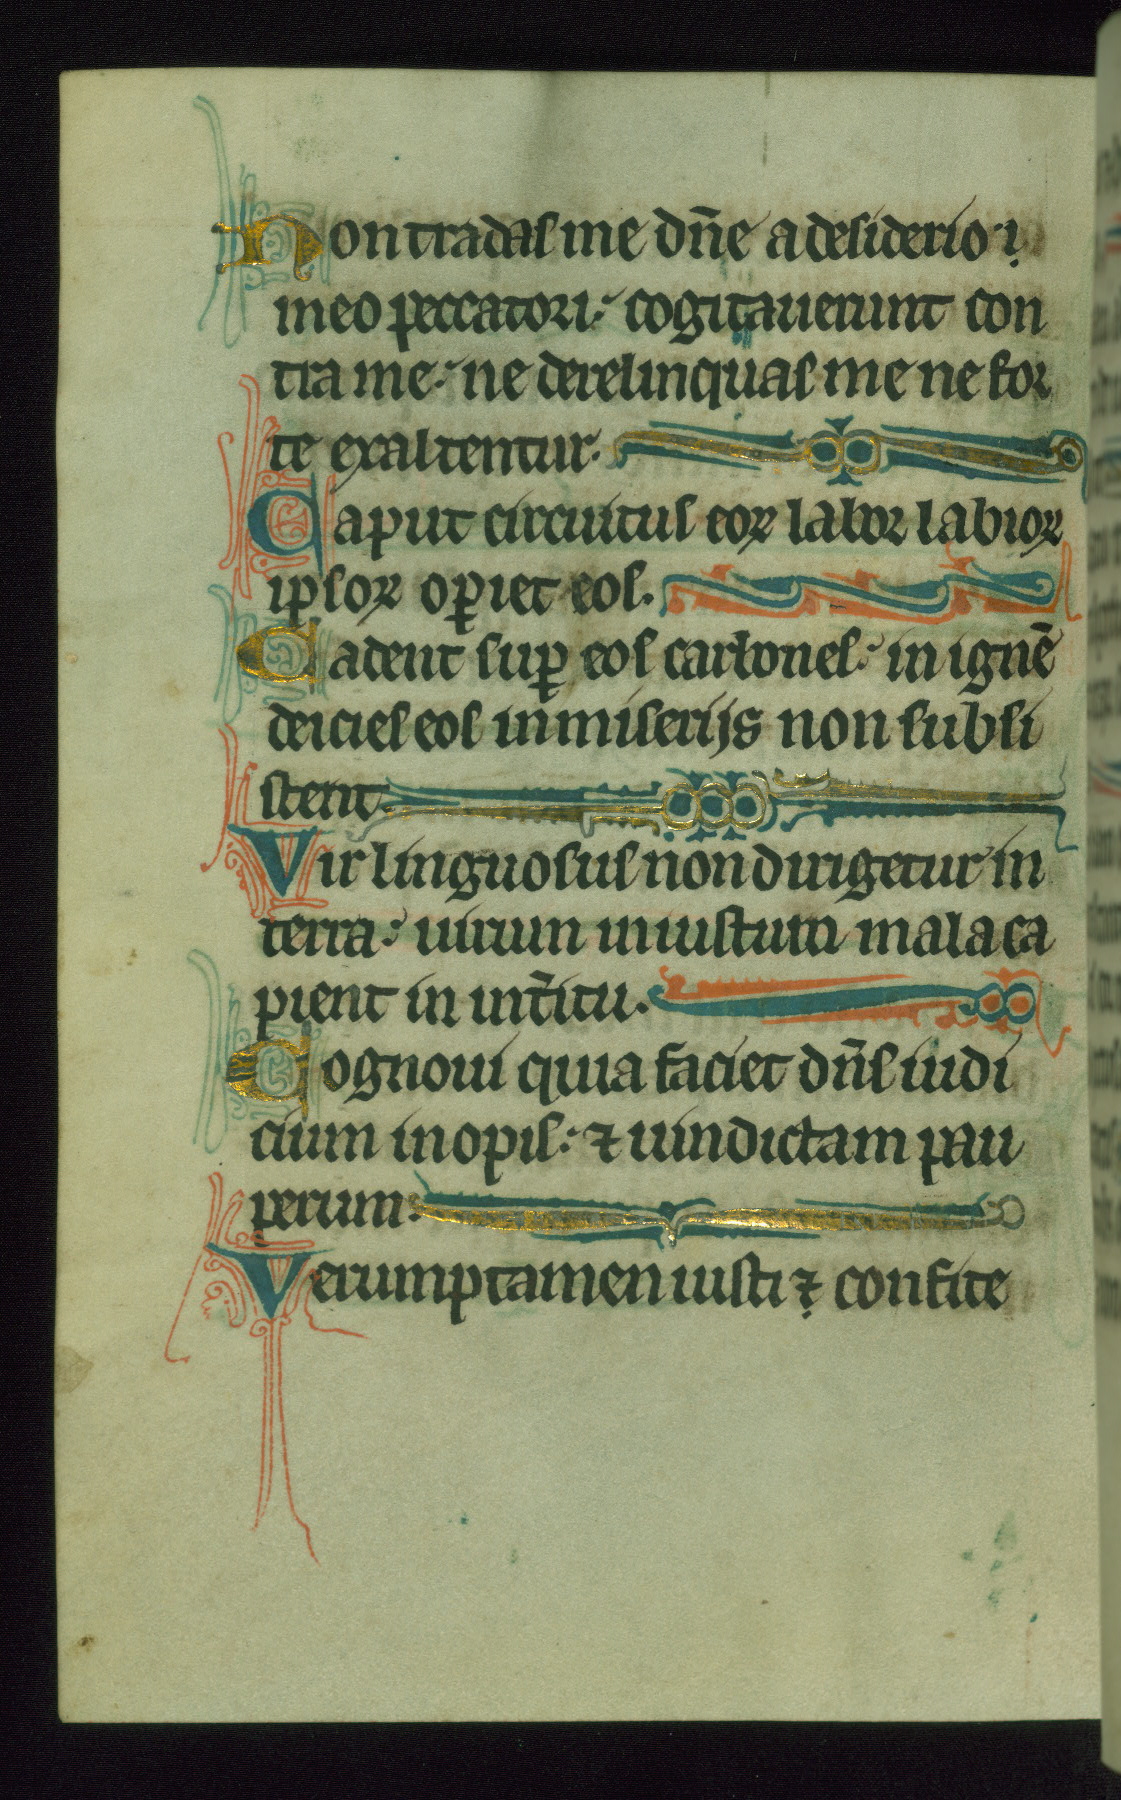 Non tradas me dn̄e a desiderio .i.
meo peccatori: cogitauerunt con
tra me: ne derelinquas me ne for
te exaltentur.
Caput circuitus eoꝝ labor labioꝝ
ipsoꝝ oꝑiet eos.
Cadent suꝑ eos carbones: in ignē
deicies eos in miserijs non subsi
stent.
Vir linguosus non dirigetur in
terra: uirum iniustum mala ca
pient in int̄itu.
Cognoui quia faciet dn̄s iudi
cium inopis: ⁊ uindictam pau
perum.
Verumptamen iusti ⁊ confite